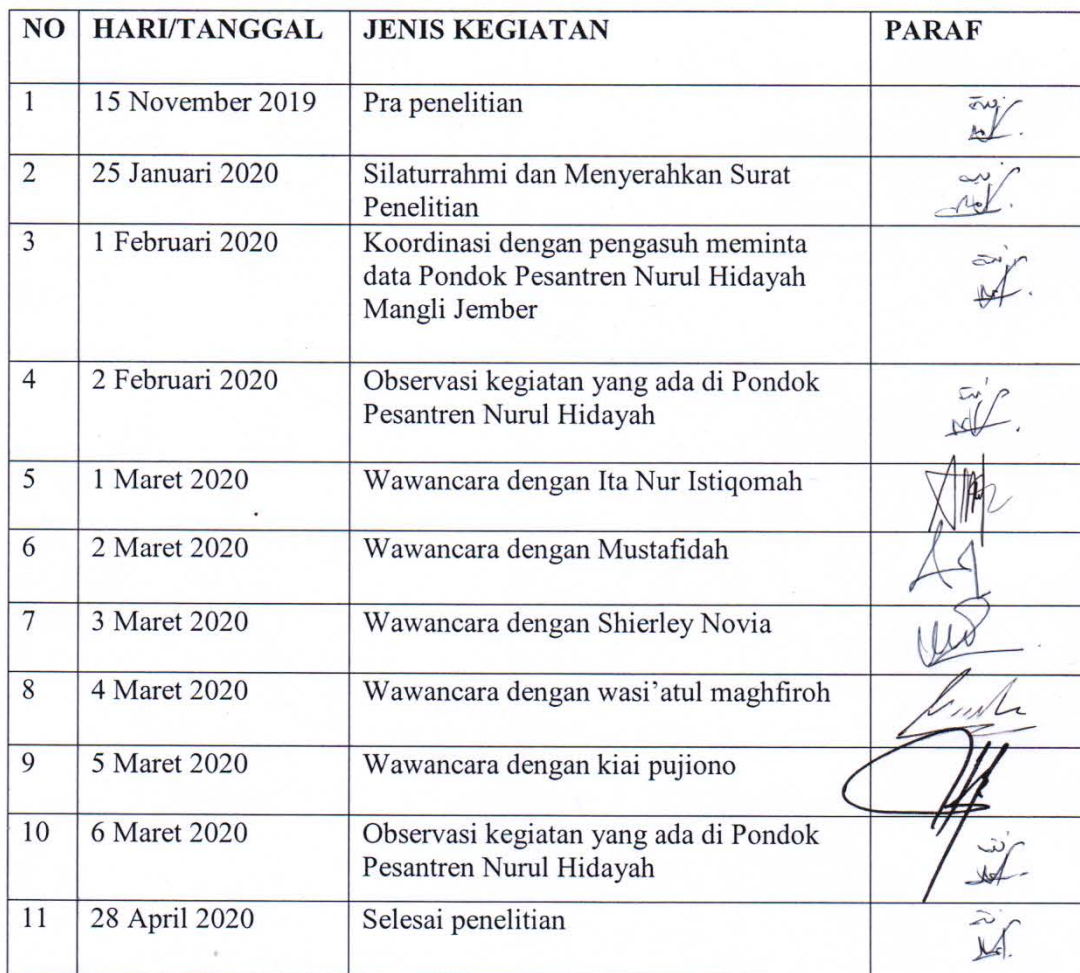 NO HARI/TANGGAL JENIS KEGIATAN PARAF
1 15 November 2019 Pra penelitian
2 25 Januari 2020 Silaturrahmi dan Menyerahkan Surat
Penelitian
3 1 Februari 2020 Koordinasi dengan pengasuh meminta
data Pondok Pesantren Nurul Hidayah
Mangli Jember
4 2 Februari 2020 Observasi kegiatan yang ada di Pondok
Pesantren Nurul Hidayah
5 1 Maret 2020 Wawancara dengan Ita Nur Istiqomah
6 2 Maret 2020 Wawancara dengan Mustafidah
7 3 Maret 2020 Wawancara dengan Shierley Novia
8 4 Maret 2020 Wawancara dengan wasi’atul maghfiroh
9 5 Maret 2020 Wawancara dengan kiai pujiono
10 6 Maret 2020 Observasi kegiatan yang ada di Pondok
Pesantren Nurul Hidayah
11 28 April 2020 Selesai penelitian